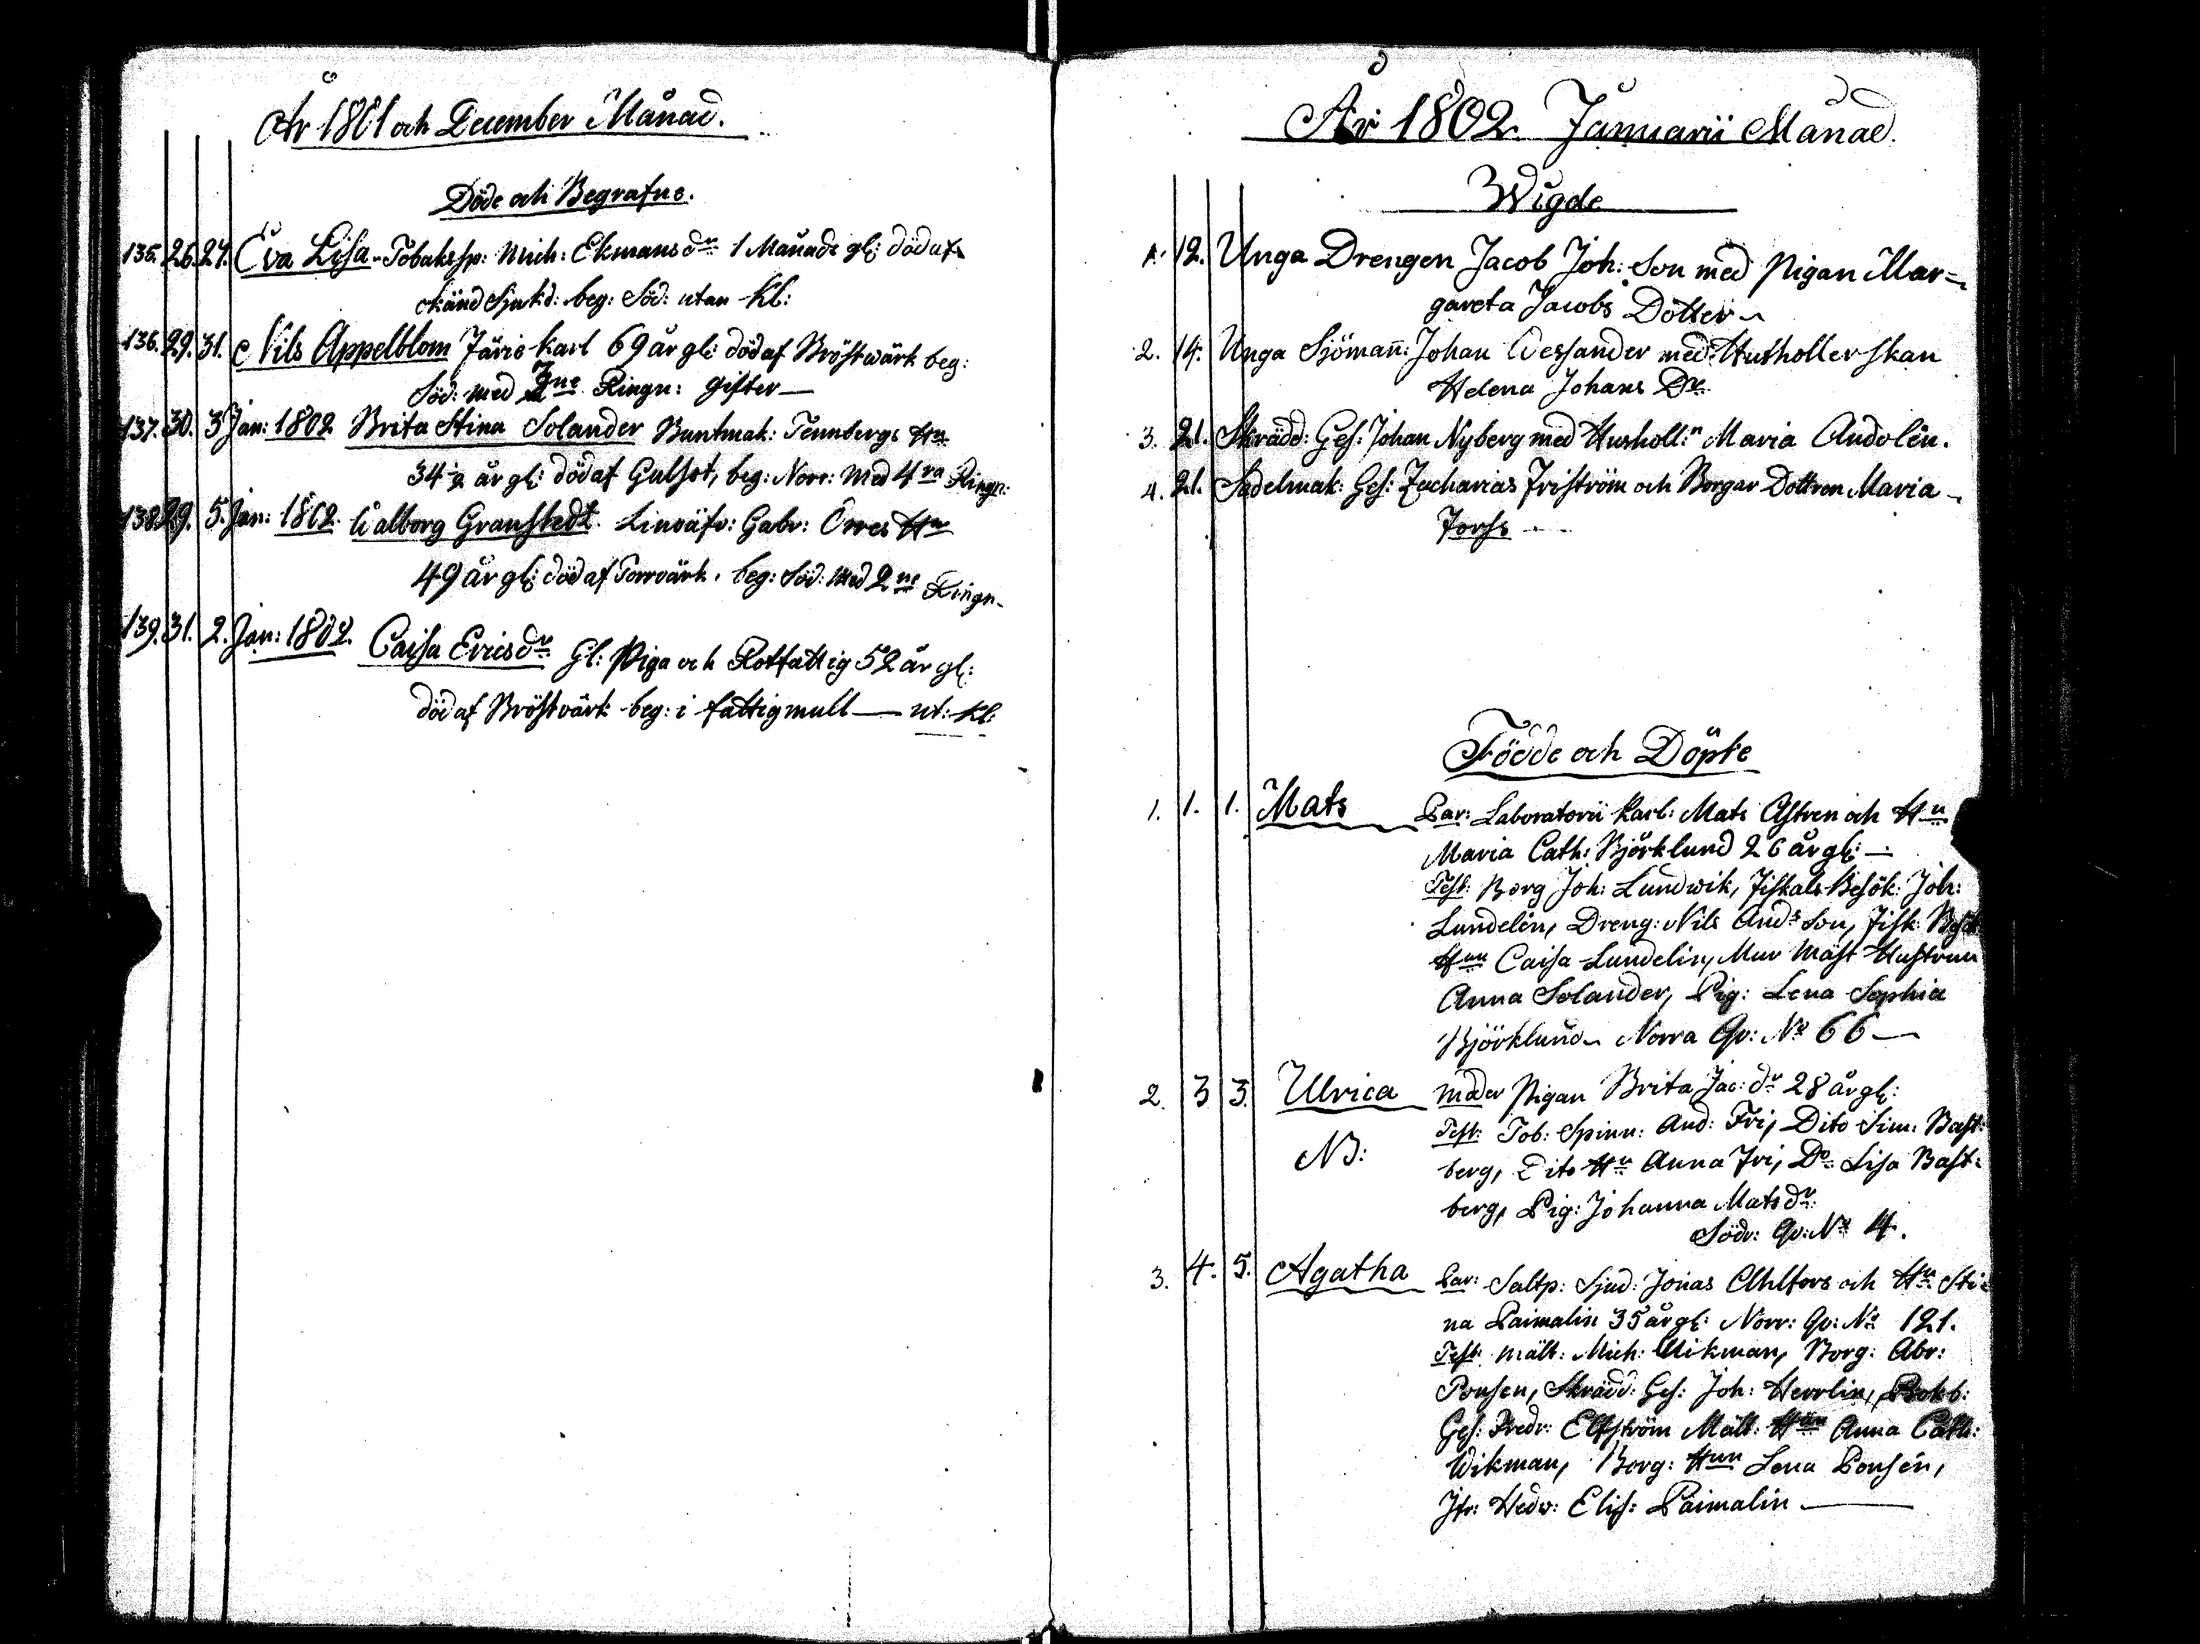 År 1801 och December Månad.
Döde och Begrafne.
135. 26. 27. Eva Lisa Tobakssp: Mich: Ekmans dr 1 Månads gl: död af o
känd Sjukd: beg: Söd: utan Kl:
136. 29. 31. Nils Appelblom Färie karl 69 år gl: död af Bröstwärk beg:
Söd: med 2ne Ringn: gifter —
137. 30. 3 Jan: 1802 Brita Stina Solander Buntmak: Tennbergs Hu
34 ½ år gl: död af Gulsot, beg: Norr: Med 4ra Ringn:
138. 29. 5. Jan: 1802. Walborg Granstedt. Linväfv: Gabr: Orres Hu
49 år gl: död af Torrvärk, beg: Söd: Med 2ne Ringn.
139. 31. 2. Jan: 1802. Caisa Ericsdr Gl: Piga och Rotfattig 52 år gl:
död af Bröstvärk beg: i fattigmull — ut: Kl:
År 1802. Januarii Månad.
Wigde
1. 12. Unga Drengen Jacob Joh: Son med Pigan Mar=
gareta Jacobs Dotter
2. 14. Unga Sjöman: Johan Wessander med Hushollerskan
Helena Johans Dr
3. 21. Skrädd: Ges: Johan Nyberg med Husholl:n Maria Andolin.
4. 21. Sadelmak: Ges: Zacharias Friström och Borgar Dottren Maria
Forss
Födde och Döpte
1. 1. 1. Mats Par: Laboratorii Karl: Mats Astren och Hu
Maria Cath: Björklund 26 år gl: —
Test: Borg Joh: Lundwik, Fiskals Besök: Joh:
Lundelin, Dreng: Nils Ands Son, Fisk: Besök
Hun Caisa Lundelin, Mur Mäst Hustrun
Anna Solander, Pig: Lena Sophia
Björklund Norra Qv: No 66 —
2. 3 3. Ulrica moder Pigan Brita Jac: dr 28 år gl:
NB: Test: Tob: Spinn: And: Fri, Dito Sim: Bast-
berg, Dito Hu Anna Fri, Do Lisa Bast-
berg, Pig: Johanna Mats dr
Södr: Qv: No 4.
3. 4. 5. Agatha Par: Saltp: Sjud: Jonas Ahlfors och Hu Sti-
na Paimalin 35 år gl: Norr: Qv: No 121.
Test: Mält: Mich: Wikman, Borg: Abr:
Ponsen, Skrädd: Ges: Joh: Herrlin, Bokb:
Ges: Fredr: Elfström Mält: Hun Anna Cath:
Wikman, Borg: Hun Lena Ponsén,
Jfr: Hedw: Elis: Paimalin —